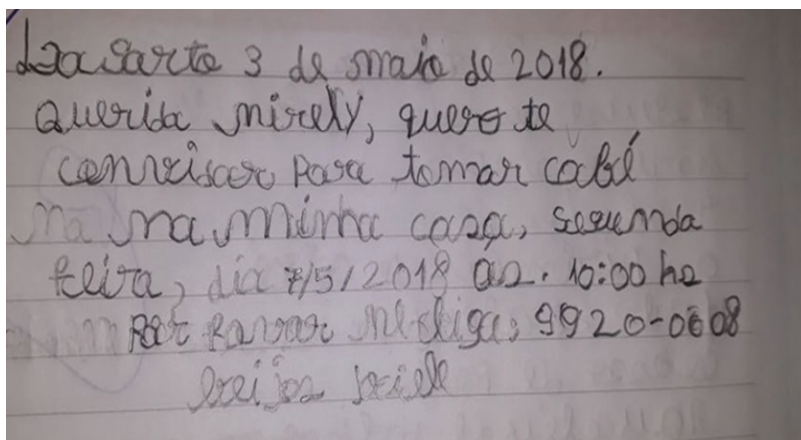 3 de maio de 2018.
Querida mirely, quero te
para tomar cabé
na na minha casa, segunda
feira, dia 7/5/2018 as. 10:00 hs
Por favor me liga, 9920-0608
beijos